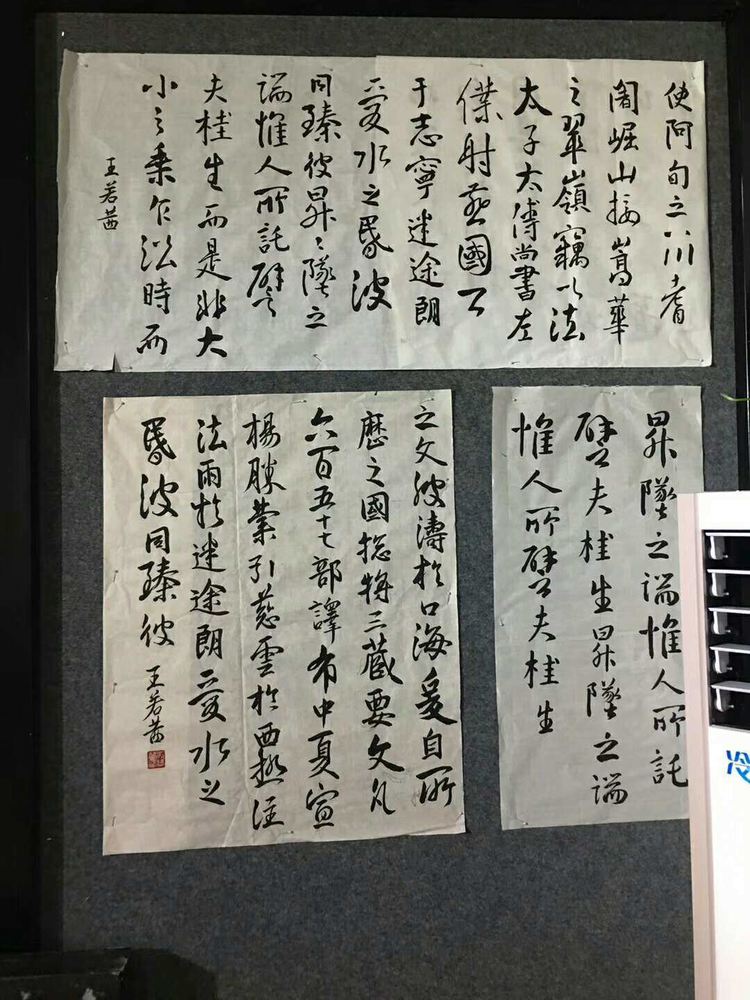 使阿旬之八川耆
闍崛山接嵩華
之翠嶺竊以法
太子太傅尚書左
僕射燕國公
于志寧迷途朗
愛水之昏波
同臻彼昇〻墜之
端惟人所託譬
夫桂生而是非大
小之乘乍沿時而
王若茜
之文波濤於口海爰自所
歷之國總將三藏要文凡
六百五十七部譯布中夏宣
楊勝業引慈雲於西極注
法雨於迷途朗愛水之
昏波同臻彼
王若茜
昇墜之端惟人所託
譬夫桂生昇墜之端
惟人所譬夫桂生
冷